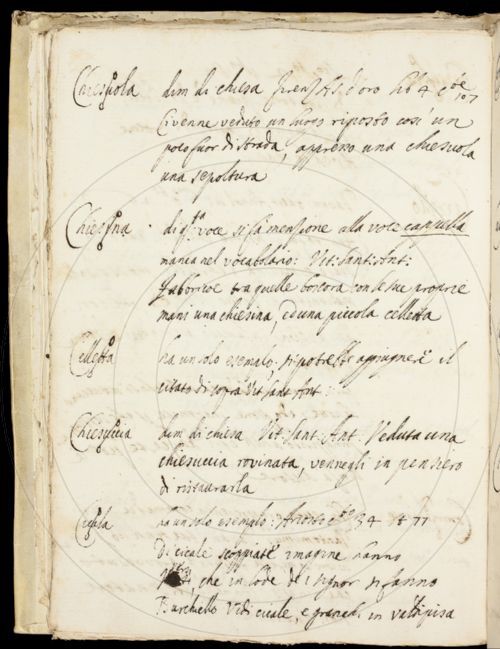 Chiesuola dim di chiesa Firenz As. d'oro lib 4, c.te 107
Ci venne veduto un luogo riposto così un
poco fuor di strada, appresso una chiesuola
una sepoltura
Chiesina di q.ta voce si fa menzione alla voce cappella
manca nel vocabolario: Vit: Sant: Ant:
Fabbricoe tra quelle boscora con le sue proprie
mani una chiesina, ed una piccola celletta
Celletta ha un solo esempio; si potrebbe aggiugnere il
citato di sopra Vit Sant Ant:
Chiesuccia dim di chiesa Vit: Sant: Ant: Veduta una
chiesuccia rovinata, vennegli in pensiero
di ristaurarla
Cicala ha un solo esempio: Ariosto c.to 34 st 77
Di cicale scoppiate imagine hanno
che in lode de i signor si fanno
Burchiello Vidi cicale, e granchi in Valdipisa